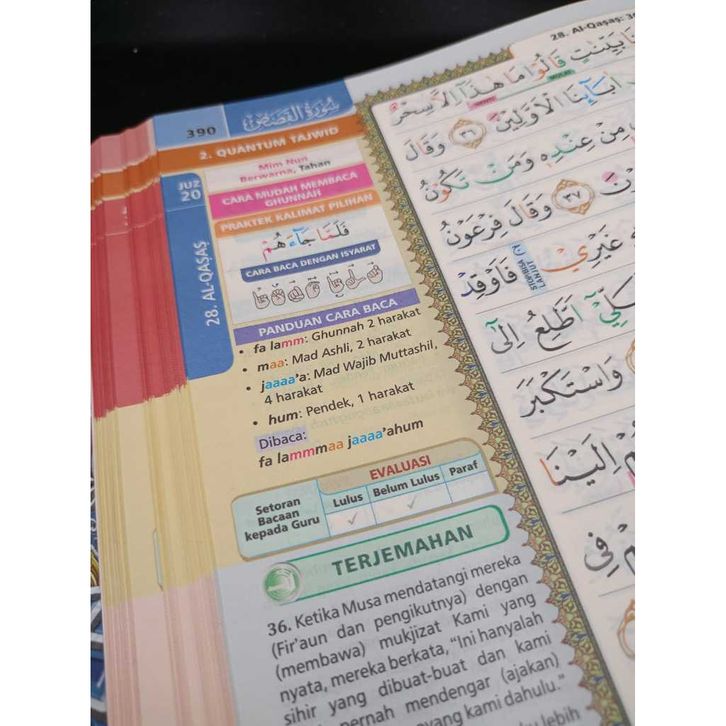 390
سُوْرَةُ الْقَصَصِ
2. QUANTUM TAJWID
JUZ
20
28. AL-QAṢAṢ
Mim Nun
Berwarna, Tahan
CARA MUDAH MEMBACA
GHUNNAH
PRAKTEK KALIMAT PILIHAN
فَلَمَّا جَآءَهُمْ
CARA BACA DENGAN ISYARAT
PANDUAN CARA BACA
• fa lamm: Ghunnah 2 harakat
• maa: Mad Ashli, 2 harakat
• jaaaa'a: Mad Wajib Muttashil,
4 harakat
• hum: Pendek, 1 harakat
Dibaca:
fa lammmaa jaaaa'ahum
EVALUASI
Setoran
Bacaan
kepada Guru
Lulus
Belum Lulus
Paraf
✓
✓
TERJEMAHAN
36. Ketika Musa mendatangi mereka
(Fir'aun dan pengikutnya) dengan
(membawa) mukjizat Kami yang
nyata, mereka berkata, "Ini hanyalah
sihir yang dibuat-buat dan kami
pernah mendengar (ajakan)
yang kami dahulu."
lebih
28. Al-Qaṣaṣ: 3
بَيِّنٰتٍ قَالُوْا مَا هٰذَآ اِلَّا سِحْرٌ
اٰبَآىِٕنَا الْاَوَّلِيْنَ ٣٦ وَقَالَ
مِنْ عِنْدِهٖ وَمَنْ تَكُوْنُ
٣٧ وَقَالَ فِرْعَوْنُ
غَيْرِيْ فَاَوْقِدْ
STOP BISA
LANJUT
اَطَّلِعُ اِلٰٓى
وَاسْتَكْبَرَ
اِلَيْنَا
فِى